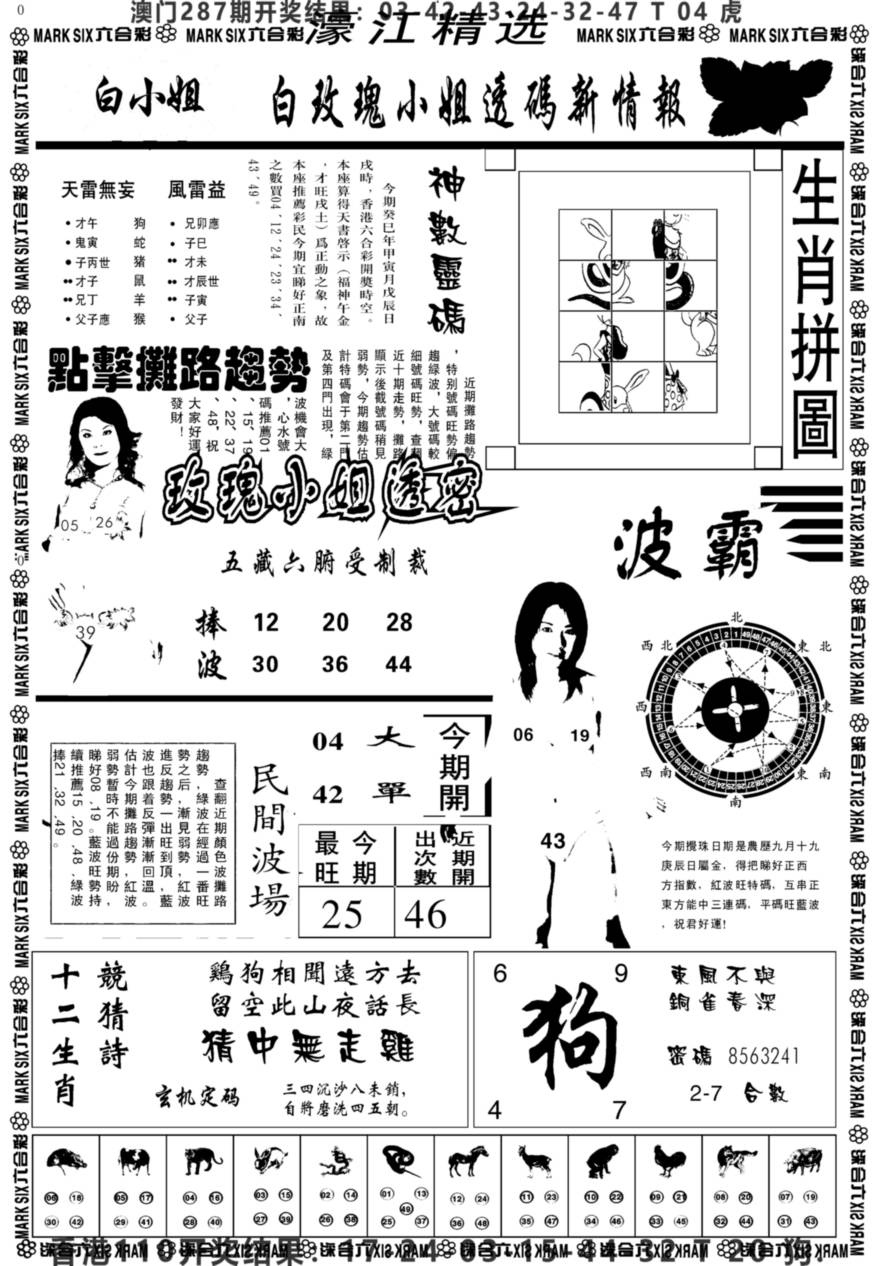 0
澳门287期开奖结果：03-42-43-24-32-47 T 04 虎
濠江精选
MARK SIX六合彩 MARK SIX六合彩 MARK SIX六合彩 MARK SIX六合彩
白小姐 白玫瑰小姐透碼新情報
天雷無妄 風雷益
•才午 狗 •兄卯應
•鬼寅 蛇 •子巳
●子丙世 豬 ••才未
••才子 鼠 ••才辰世
••兄丁 羊 ••子寅
•父子應 猴 •父子
神數靈碼
今期癸巳年甲寅月戊辰日
戌時，香港六合彩開獎時空。
本座算得天書啓示（福神午金
，才旺戌土）爲正動之象，故
本座推薦彩民今期宜睇好正南
之數買04、12、24、23、34、
43、49。
生肖拼圖
點擊攤路趨勢
近期攤路趨勢
，特别號碼旺勢偏
趨綠波，大號碼較
細號碼旺勢，查翻
近十期走勢，攤路
顯示後截號碼稍見
弱勢，今期趨勢估
計特碼會于第二門
及第四門出現，綠
波機會大
，心水號
碼推薦01
、15、19
、22、37
、48，祝
大家好運
發財！
玫瑰小姐透密
05 26
39
五藏六腑受制裁
捧 12 20 28
波 30 36 44
波霸
06 19
43
北
西北 東北
西 東
西南 東南
南
今期攪珠日期是農歷九月十九
庚辰日屬金，得把睇好正西
方指數，紅波旺特碼，互串正
東方能中三連碼，平碼旺藍波
，祝君好運!
查翻近期顏色攤路
趨勢，綠波在經過一波
勢之后，漸見弱勢，紅番旺
進反趨勢一出旺到頂，藍波
波也跟着反彈漸漸回温。
估計今期攤路趨勢，紅波
弱勢暫時不能過份期盼，
睇好08、19。藍波旺勢持
續推薦15、20、48，綠波
捧21、32、49。
民間波場
04 大
42 單
今期開
今期最旺 近期開出次數
25 46
十二生肖
競猜詩
鷄狗相聞遠方去
留空此山夜話長
猜中無走雞
玄机定码
三四沉沙八未銷，
自將磨洗四五朝。
6 9
狗
4 7
東風不與
銅雀春深
密碼 8563241
2-7 合數
06 18 05 17 04 16 03 15 02 14 01 13 12 24 11 23 10 22 09 21 08 20 07 19
49
30 42 29 41 28 40 27 39 26 38 25 37 36 48 35 47 34 46 33 45 32 44 31 43
香港110开奖结果：17-24-03-15-44-32 T 20 狗